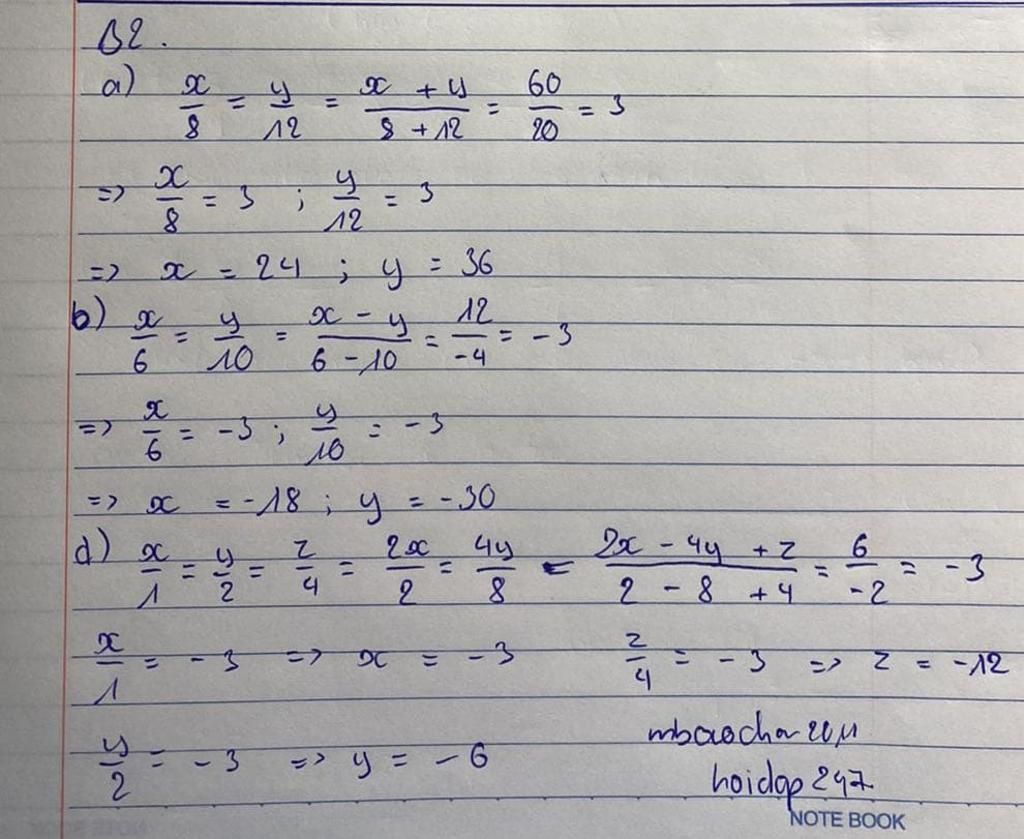 B2.
a) x/8 = y/12 = (x + y)/(8 + 12) = 60/20 = 3
=> x/8 = 3 ; y/12 = 3
=> x = 24 ; y = 36
b) x/6 = y/10 = (x - y)/(6 - 10) = 12/-4 = -3
=> x/6 = -3 ; y/10 = -3
=> x = -18 ; y = -30
d) x/1 = y/2 = z/4 = 2x/2 = 4y/8 = (2x - 4y + z)/(2 - 8 + 4) = 6/-2 = -3
x/1 = -3 => x = -3 z/4 = -3 => z = -12
y/2 = -3 => y = -6
hoidap247
NOTE BOOK